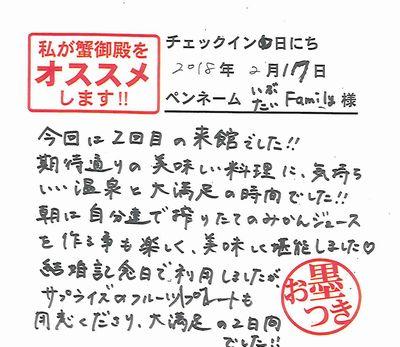 私が蟹御殿を
オススメ
します!!
チェックイン日にち
2018年 2月17日
ペンネーム いぶたい Family 様
今回は2回目の来館でした!!
期待通りの美味しい料理に、気持ち
いい温泉と大満足の時間でした!!
朝は自分達で搾りたてのみかんジュース
を作る事も楽しく、美味しく堪能しました♡
結婚記念日で利用しましたが、
サプライズのフルーツプレートも
用意くださり、大満足の2日間
でした!!
お墨つき